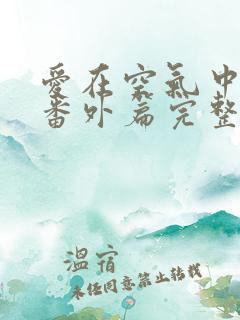 愛在空氣中
番外篇完整
溫宿
未任同意禁止转载